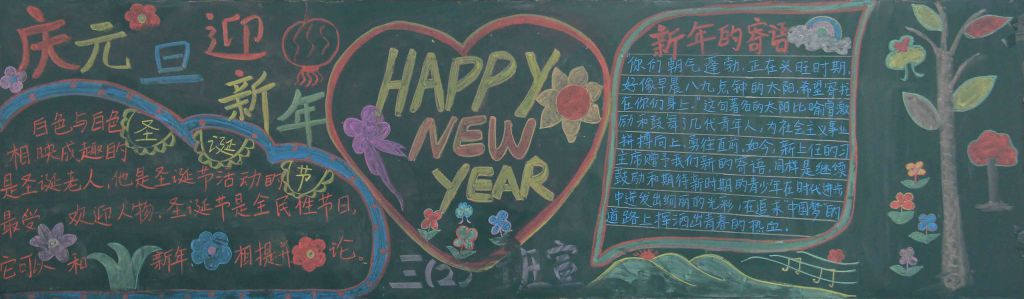 庆元旦迎
新年
白色与白色
相映成趣的
圣诞节
是圣诞老人,他是圣诞节活动的
最受 欢迎人物。圣诞节是全民性节日,
它可以 和 新年 相提并论。
HAPPY
NEW
YEAR
三(2)班宣
新年的寄语
你们朝气蓬勃,正在兴旺时期,
好像早晨八九点钟的太阳,希望寄托
在你们身上。"这句著名的太阳比喻曾激
励和鼓舞了几代青年人,为社会主义事业
拼搏向上,勇往直前,如今,新上任的习
主席赠予我们新的寄语,同样是继续
鼓励和期待新时期的青少年在时代进步
中迸发出绚丽的光彩,在追求中国梦的
道路上挥洒出青春的热血。